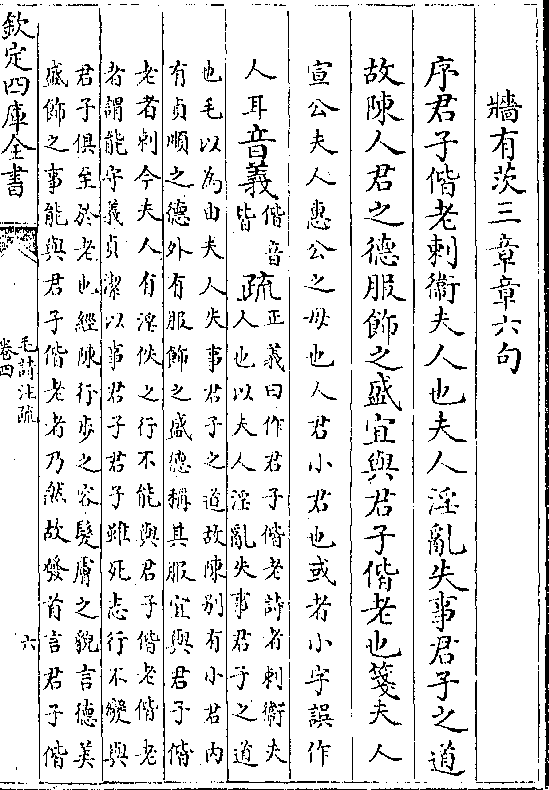 牆有茨三章章六句
序君子偕老刺衞夫人也夫人淫亂失事君子之道
故陳人君之德服飾之盛宜與君子偕老也箋夫人
宣公夫人惠公之母也人君小君也或者小字誤作
人耳音義偕音
皆疏正義曰作君子偕老詩者刺衞夫
人也以夫人淫亂失事君子之道
也毛以為由夫人失事君子之道故陳别有小君内
有貞順之德外有服飾之盛德稱其服宜與君子偕
老者刺今夫人有淫佚之行不能與君子偕老偕老
者謂能守義貞潔以事君子君子雖死志行不變與
君子俱至於老也經陳行步之容髮膚之貌言德美
盛飾之事能與君子偕老者乃然故發首言君子偕
欽定四庫全書
毛詩注疏
卷四
六